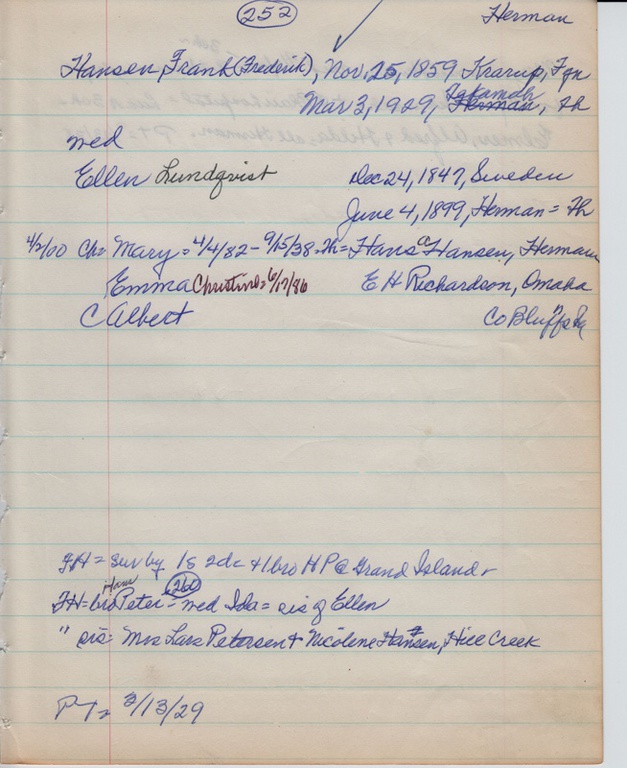 252 Herman
Hansen, Frank (Frederik), Nov. 25, 1859 Krarup, Fyn
Mar 3, 1929, Tekamah Herman, Th
wed
Ellen Lundqvist Dec 24, 1847, Sweden
June 4, 1899, Herman = Th
4/2/00 Ch = Mary = 4/4/82 - 9/15/38 = Th = Hans C Hansen, Herman
Emma Christine = 6/17/86 E H Richardson, Omaha
C Albert Co Bluffs Ia
FH = sur by 1s 2d = + 1 bro HP @ Grand Island
FH = bro Hans Peter = 260 wed Ida = sis of Ellen
" sis = Mrs Lars Petersen + Nicolene Hansen, Hill Creek
PT = 3/13/29